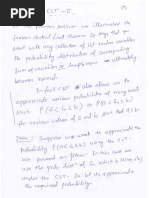 CLT - II
(1)
In the previous session we illustrated the
famous central limit theorem. It says that if you
start with any collection of iid random variables
the probability distribution of corresponding
sum of variables or sample mean ultimately
becomes normal.
In fact CLT also allows us to
approximate various probabilities of many need
such P(a ≤ b) or P(a ≤ b)
for various values of a and b such that a<b.
Note: Suppose we want to approximate the
probability P(a ≤ b) using CLT
we proceed as follows. In this case we
use the
under the CLT. So let us approximate
the required probability.